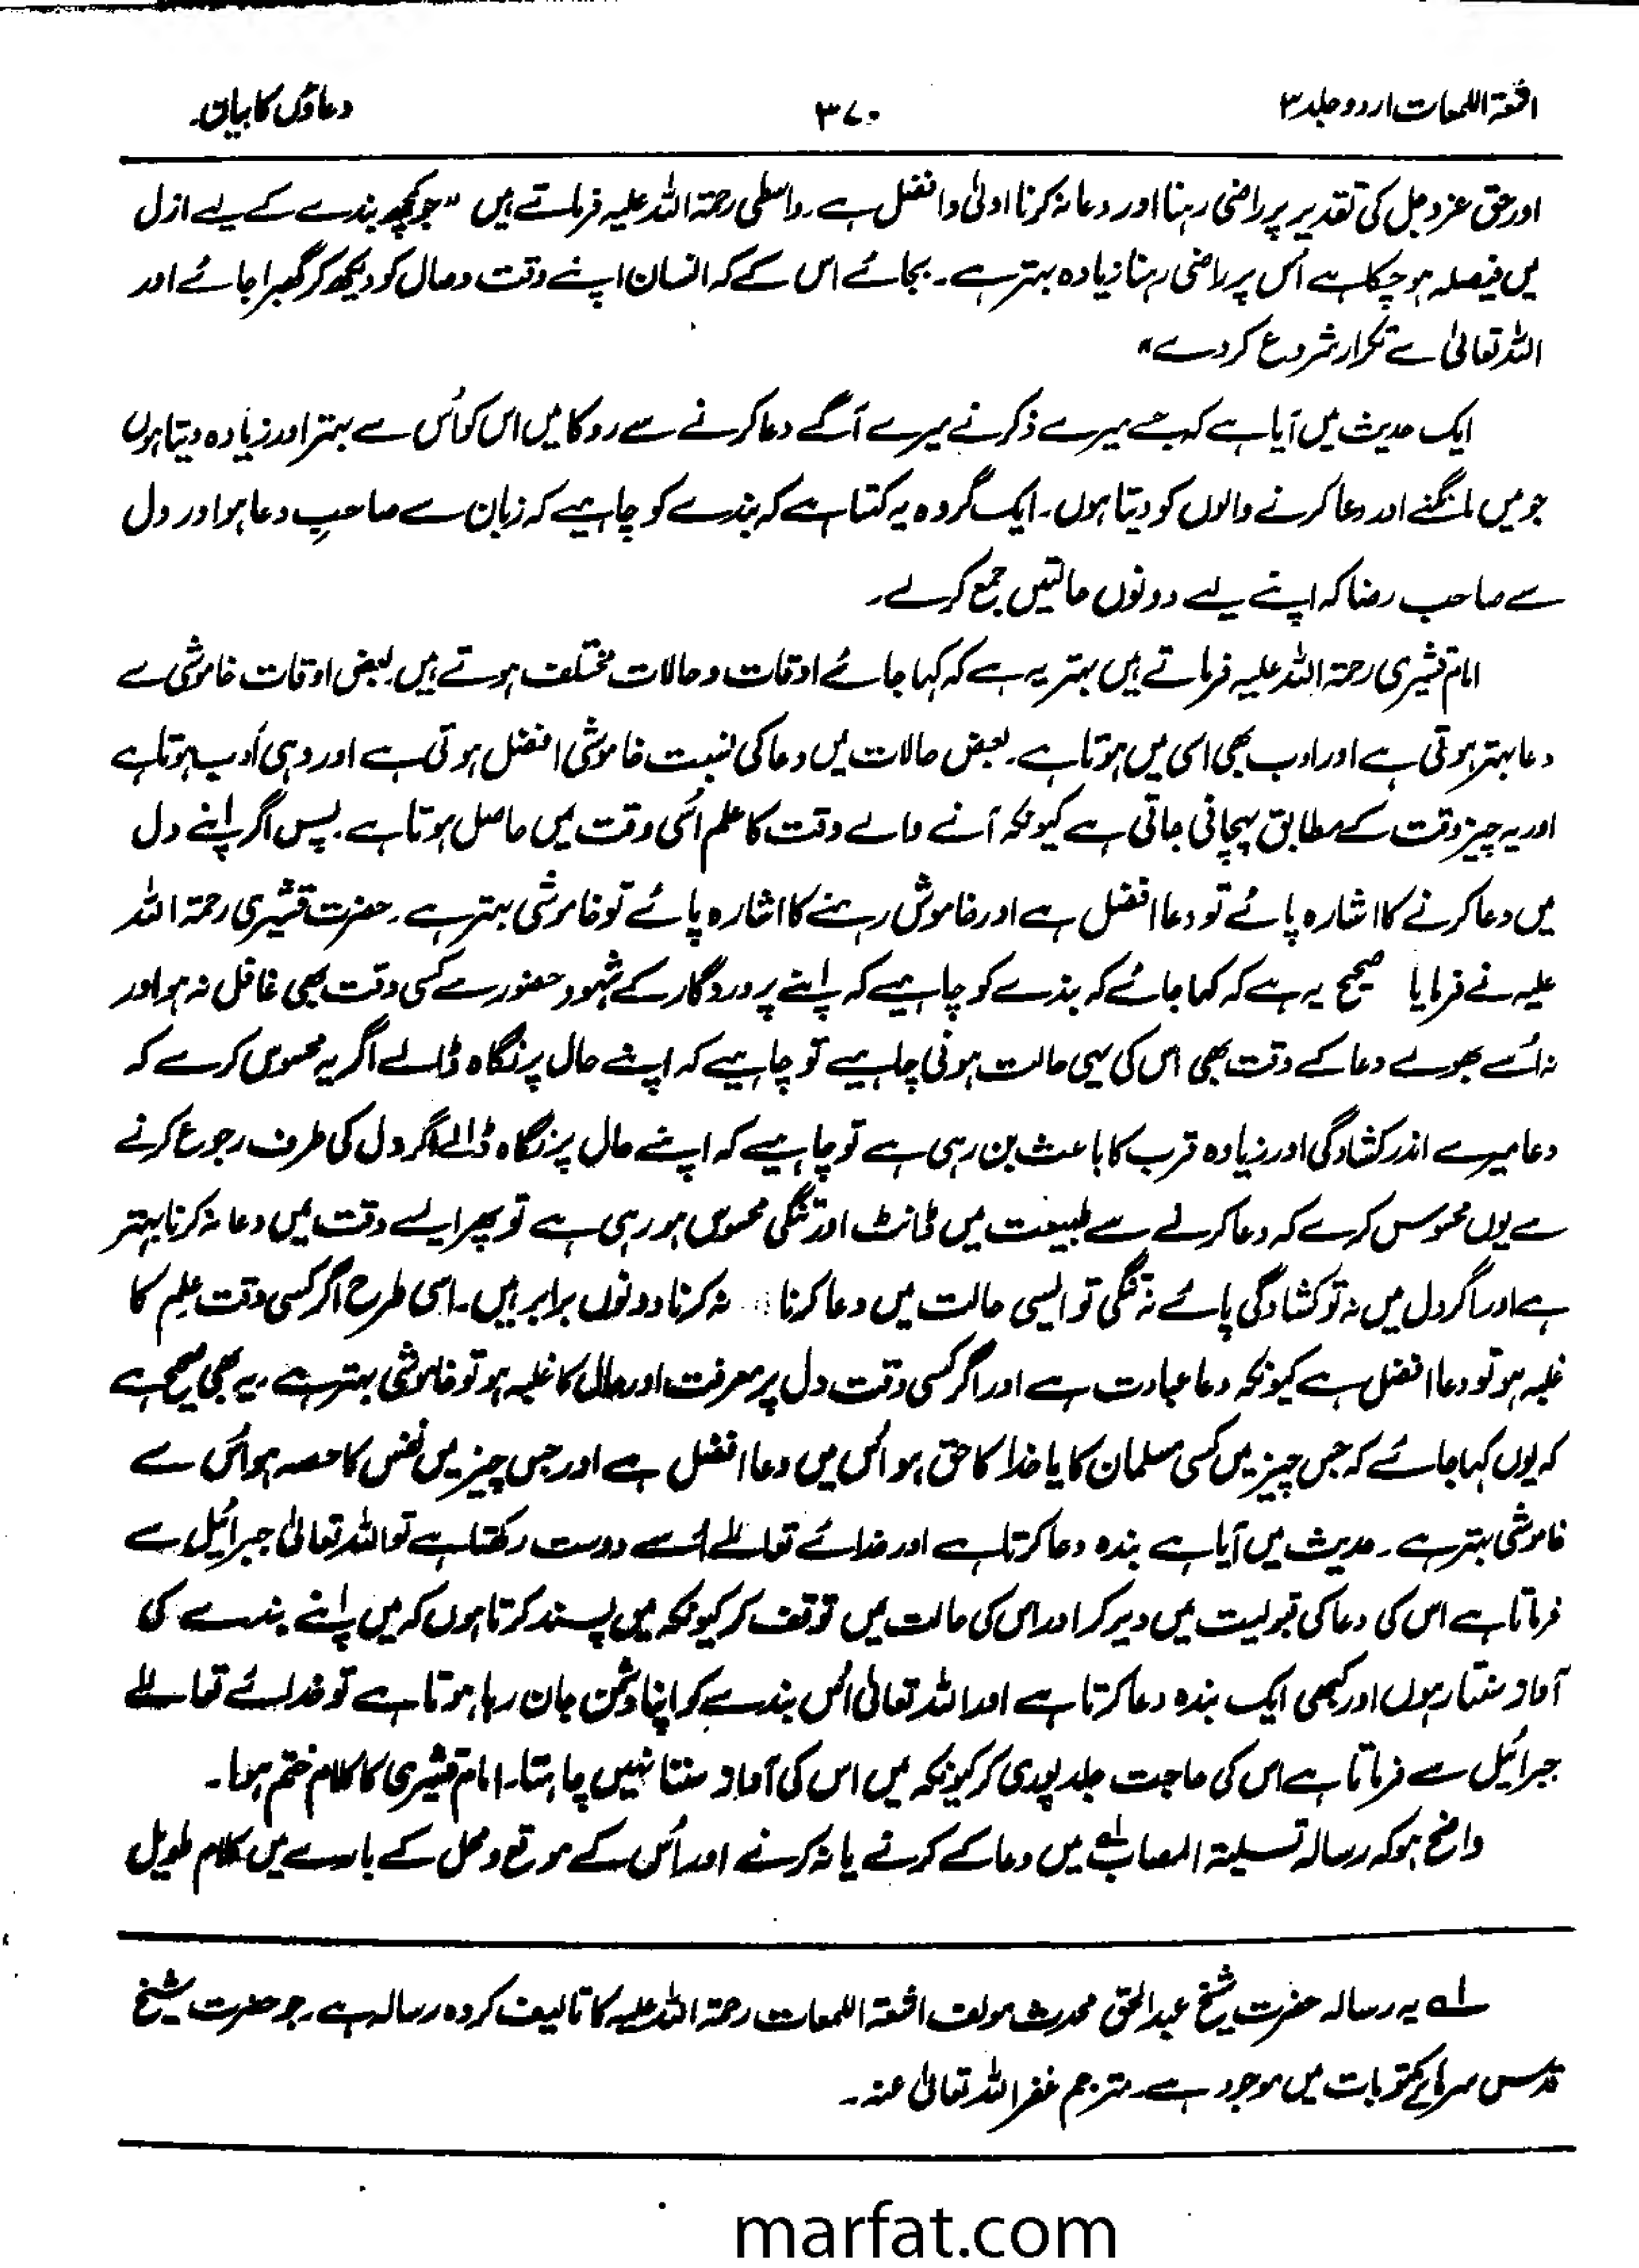 اشعۃ اللمعات اردو جلد ۳
۳۷۰
دعاؤں کا بیان۔
اور حق عزوجل کی تقدیر پر راضی رہنا اور دعا نہ کرنا اولیٰ وافضل ہے۔ واسطی رحمۃ اللہ علیہ فرماتے ہیں "جو کچھ بندے کے لیے ازل
میں فیصلہ ہو چکا ہے اُس پر راضی رہنا زیادہ بہتر ہے۔ بجائے اس کے کہ انسان اپنے وقت وحال کو دیکھ کر گھبرا جائے اور
اللہ تعالیٰ سے تکرار شروع کر دے"
ایک حدیث میں آیا ہے کہ جسے میرے ذکر نے میرے آگے دعا کرنے سے روکا میں اس کو اُس سے بہتر اور زیادہ دیتا ہوں
جو میں مانگنے اور دعا کرنے والوں کو دیتا ہوں۔ ایک گروہ یہ کہتا ہے کہ بندے کو چاہیے کہ زبان سے صاحبِ دعا ہو اور دل
سے صاحب رضا کہ اپنے لیے دونوں حالتیں جمع کرلے۔
امام قشیری رحمۃ اللہ علیہ فرماتے ہیں بہتر یہ ہے کہ کہا جائے اوقات وحالات مختلف ہوتے ہیں۔ بعض اوقات خاموشی سے
دعا بہتر ہوتی ہے اور ادب بھی اسی میں ہوتا ہے۔ بعض حالات میں دعا کی نسبت خاموشی افضل ہوتی ہے اور وہی اَدب ہوتا ہے
اور یہ چیز وقت کے مطابق پہچانی جاتی ہے کیونکہ آنے والے وقت کا علم اُسی وقت میں حاصل ہوتا ہے۔ پس اگر اپنے دل
میں دعا کرنے کا اشارہ پائے تو دعا افضل ہے اور خاموش رہنے کا اشارہ پائے تو خاموشی بہتر ہے۔ حضرت قشیری رحمۃ اللہ
علیہ نے فرمایا صحیح یہ ہے کہ کہا جائے کہ بندے کو چاہیے کہ اپنے پروردگار کے شہود حضور سے کسی وقت بھی غافل نہ ہو اور
نہ اُسے بھولے دعا کے وقت بھی اس کی یہی حالت ہونی چاہیے تو چاہیے کہ اپنے حال پر نگاہ ڈالے اگر یہ محسوس کرے کہ
دعا میرے اندر کشادگی اور زیادہ قرب کا باعث بن رہی ہے تو چاہیے کہ اپنے حال پر نگاہ ڈالے اگر دل کی طرف رجوع کرنے
سے یوں محسوس کرے کہ دعا کرلے سے طبیعت میں ڈانٹ اور تنگی محسوس ہو رہی ہے تو پھر ایسے وقت میں دعا نہ کرنا بہتر
ہے اور اگر دل میں نہ تو کشادگی پائے نہ تنگی تو ایسی حالت میں دعا کرنا نہ کرنا دونوں برابر ہیں۔ اسی طرح اگر کسی وقت علِم کا
غلبہ ہو تو دعا افضل ہے کیونکہ دعا عبادت ہے اور اگر کسی وقت دل پر معرفت اور حال کا غلبہ ہو تو خاموشی بہتر ہے۔ یہ بھی صحیح ہے
کہ یوں کہا جائے کہ جس چیز میں کسی مسلمان کا یا خدا کا حق ہو اُس میں دعا افضل ہے اور جس چیز میں نفس کا حصہ ہو اُس سے
خاموشی بہتر ہے۔ حدیث میں آیا ہے بندہ دعا کرتا ہے اور خدائے تعالےٰ اُسے دوست رکھتا ہے تو اللہ تعالیٰ جبرائیل سے
فرماتا ہے اس کی دعا کی قبولیت میں دیر کر اور اس کی حالت میں توقف کر کیونکہ میں پسند کرتا ہوں کہ میں اپنے بندے کی
آواز سنتا رہوں اور کبھی ایک بندہ دعا کرتا ہے اور اللہ تعالیٰ اُس بندے کو اپنا دشمن جان رہا ہوتا ہے تو خدائے تعالےٰ
جبرائیل سے فرماتا ہے اس کی حاجت جلد پوری کر کیونکہ میں اس کی آواز سننا نہیں چاہتا۔ امام قشیری کا کلام ختم ہوا۔
واضح ہو کہ رسالہ تسلیۃ المصاب لہ میں دعا کے کرنے یا نہ کرنے اور اُس کے موقع و محل کے بارے میں کلام طویل
لہ یہ رسالہ حضرت شیخ عبدالحق محدث مولف اشعۃ اللمعات رحمۃ اللہ علیہ کا تالیف کردہ رسالہ ہے۔ جو حضرت شیخ
قدس سرہٗ کے مکتوبات میں موجود ہے۔ مترجم غفر اللہ تعالیٰ عنہ۔
marfat.com